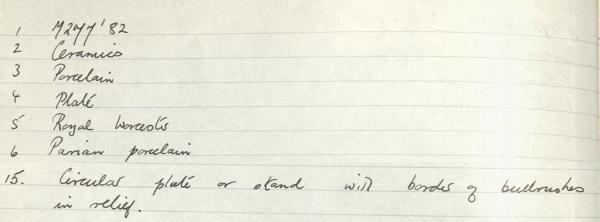 1 M277'82
2 Ceramics
3 Porcelain
4 Plate
5 Royal Worcester
6 Parian porcelain
15. Circular plate or stand with border of bullrushes
in relief.